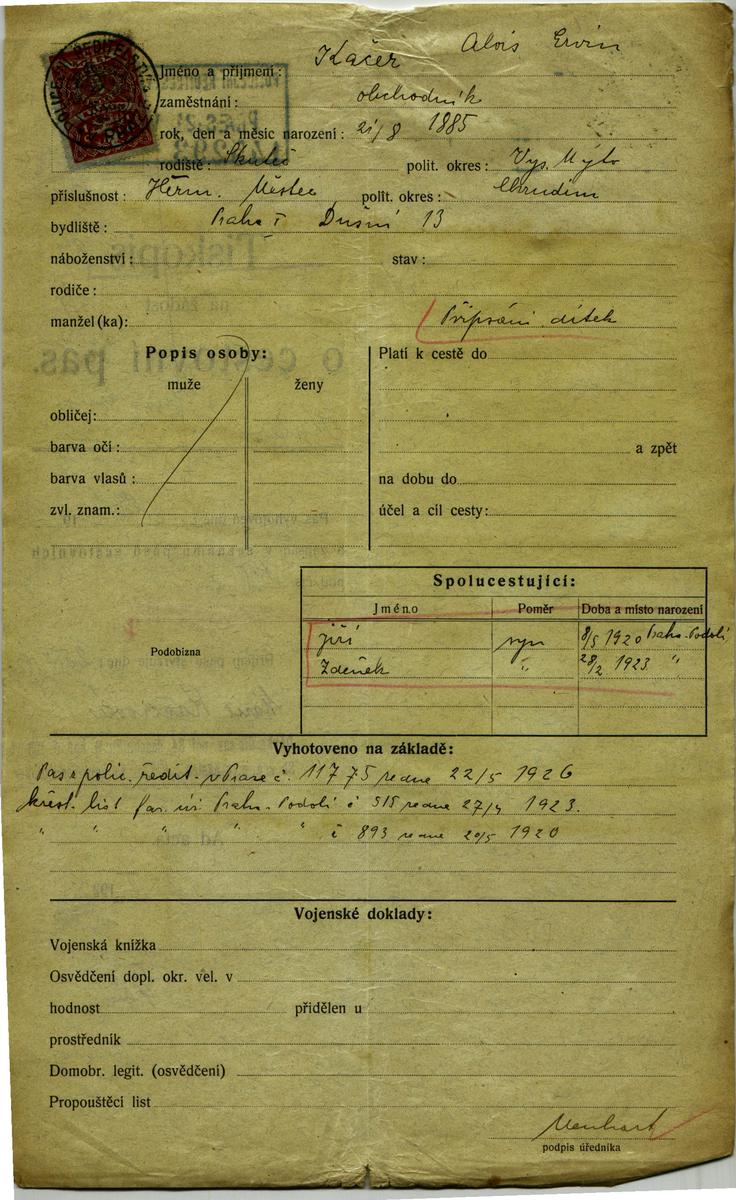 Jméno a příjmení: Kačer Alois Ervín
zaměstnání: obchodník
rok, den a měsíc narození: 21/8 1885
rodiště: Skuteč polit. okres: Vys. Mýto
příslušnost: Heřm. Městec polit. okres: Chrudim
bydliště: Praha I Dušní 13
náboženství: stav:
rodiče:
manžel(ka): Připsání dítek
Popis osoby:
muže ženy
obličej:
barva očí:
barva vlasů:
zvl. znam.:
Platí k cestě do
a zpět
na dobu do
účel a cíl cesty:
Podobizna
Spolucestující:
Jméno Poměr Doba a místo narození
Jiří syn 8/5 1920 Praha-Podolí
Zdeněk " 28/2 1923 "
Vyhotoveno na základě:
Pas z polic. ředit. v Praze č. 11775 ze dne 22/5 1926
křest. list far. úř. Praha-Podolí č 515 ze dne 27/4 1923.
" " " " " č 893 ze dne 20/5 1920
Vojenské doklady:
Vojenská knížka
Osvědčení dopl. okr. vel. v
hodnost přidělen u
prostředník
Domobr. legit. (osvědčení)
Propouštěcí list
Menhart
podpis úředníka